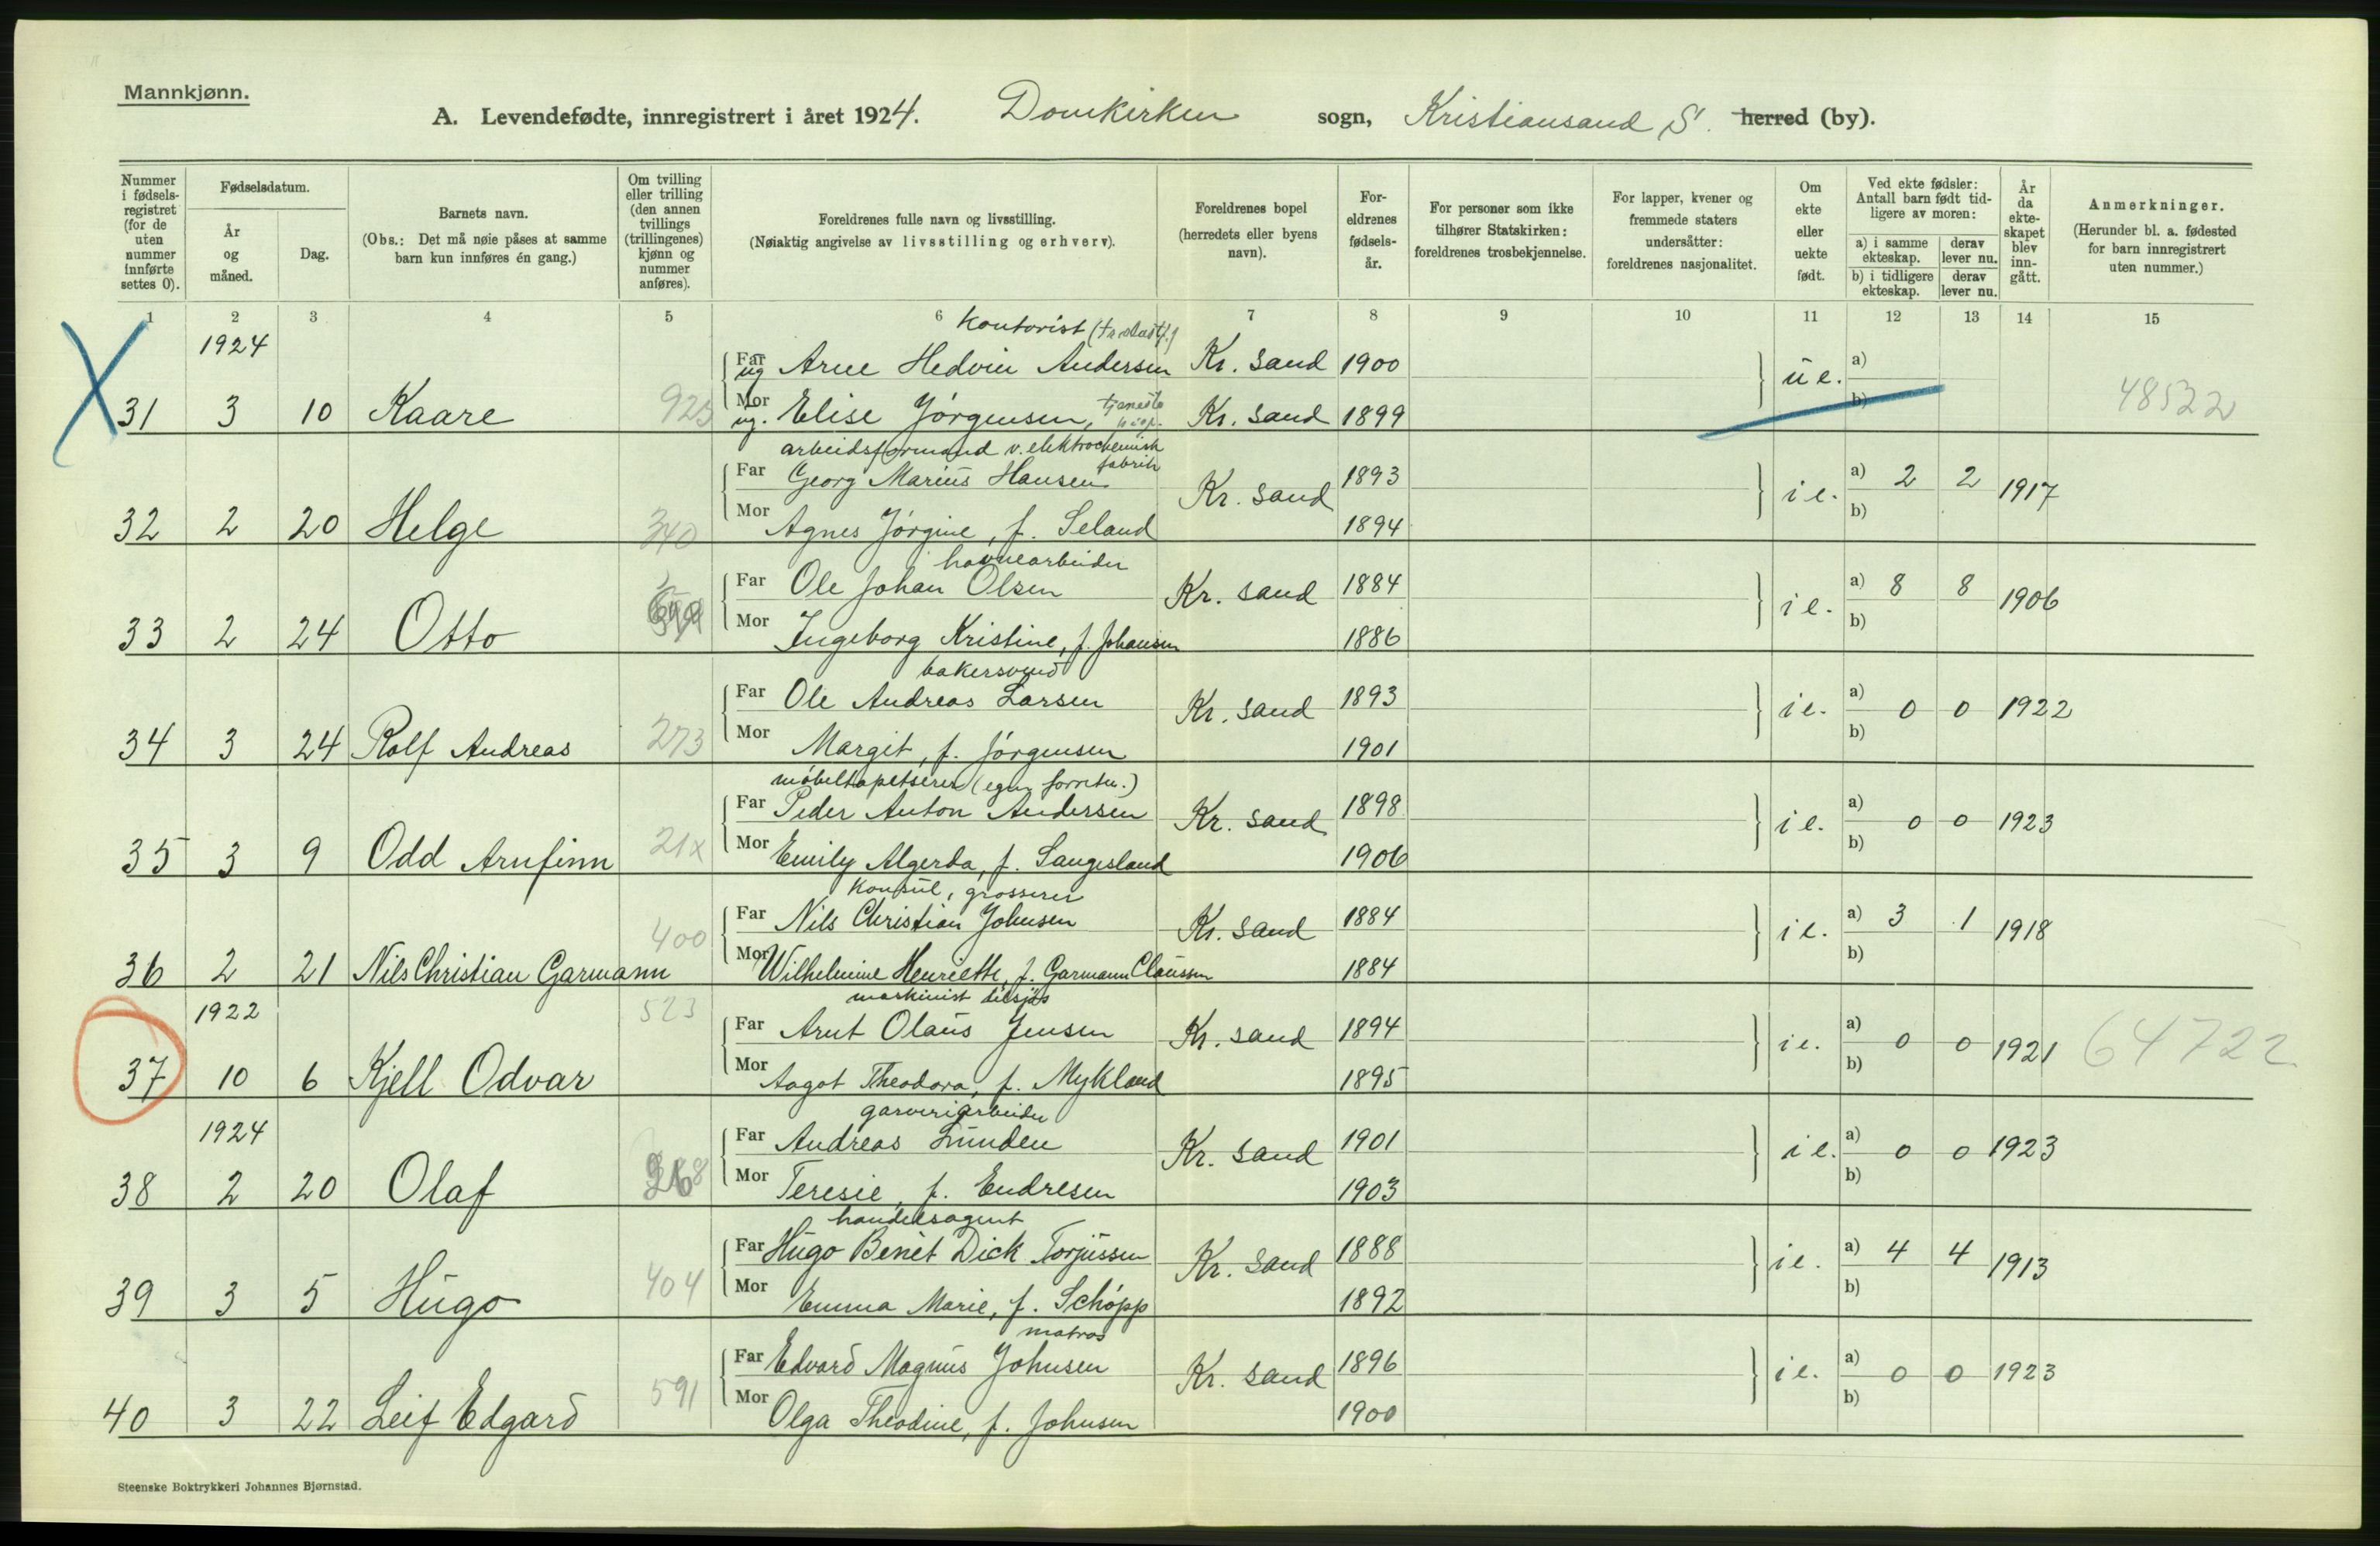 Mannkjønn.
A. Levendefødte, innregistrert i året 1924. Domkirken sogn, Kristiansand S. herred (by).
Nummer i fødselsregistret (for de uten nummer innførte settes 0).
Fødselsdatum.
År og måned.
Dag.
Barnets navn.
(Obs.: Det må nøie påses at samme barn kun innføres én gang.)
Om tvilling eller trilling (den annen tvillings (trillingenes) kjønn og nummer anføres).
Foreldrenes fulle navn og livsstilling.
(Nøiaktig angivelse av livsstilling og erhverv).
Foreldrenes bopel (herredets eller byens navn).
Foreldrenes fødselsår.
For personer som ikke tilhører Statskirken: foreldrenes trosbekjennelse.
For lapper, kvener og fremmede staters undersåtter: foreldrenes nasjonalitet.
Om ekte eller uekte født.
Ved ekte fødsler: Antall barn født tidligere av moren:
a) i samme ekteskap. derav lever nu.
b) i tidligere ekteskap. derav lever nu.
År da ekteskapet blev inngått.
Anmerkninger.
(Herunder bl. a. fødested for barn innregistrert uten nummer.)
1 2 3 4 5 6 7 8 9 10 11 12 13 14 15
1924 kontorist
Far ug Arne Hedvin Andersen Kr. sand 1900 u e. a)
31 3 10 Kaare 925 Mor ug. Elise Jörgensen, tjeneste Kr. sand 1899 b) 48522
arbeidsformand v. elektrochemisk fabrik
Far Georg Marius Hansen Kr. sand 1893 i e. a) 2 2 1917
32 2 20 Helge 340 Mor Agnes Jörgine, f. Seland 1894 b)
havnearbeider
Far Ole Johan Olsen Kr. sand 1884 i e. a) 8 8 1906
33 2 24 Otto Mor Ingeborg Kristine, f. Johansen 1886 b)
bakersvend
Far Ole Andreas Larsen Kr. sand 1893 i e. a) 0 0 1922
34 3 24 Rolf Andreas 273 Mor Margit, f. Jörgensen 1901 b)
möbeltapetserer (egen forretn.)
Far Peder Anton Andersen Kr. sand 1898 i e. a) 0 0 1923
35 3 9 Odd Arnfinn 21x Mor Emily Algerda, f. Langesland 1906 b)
Konsul, grosserer
Far Nils Christian Johnsen Kr. sand 1884 i e. a) 3 1 1918
36 2 21 Nils Christian Garmann 400 Mor Wilhelmine Henriette, f. Garmann Claussen 1884 b)
1922 523 maskinist tilsjøs
Far Arnt Olaus Jensen Kr. sand 1894 i e. a) 0 0 1921 64722
37 10 6 Kjell Odvar Mor Aagot Theodora, f. Mykland 1895 b)
1924 garveriarbeider
Far Andreas Lunden Kr. sand 1901 i e. a) 0 0 1923
38 2 20 Olaf Mor Teresie, f. Endresen 1903 b)
handelsagent
Far Hugo Benèt Dick Torjussen Kr. sand 1888 i e. a) 4 4 1913
39 3 5 Hugo 404 Mor Emma Marie, f. Schöpp 1892 b)
matros
Far Edvard Magnus Johnsen Kr. sand 1896 i e. a) 0 0 1923
40 3 22 Leif Edgard 591 Mor Olga Theodine, f. Johnsen 1900 b)
Steenske Boktrykkeri Johannes Bjørnstad.